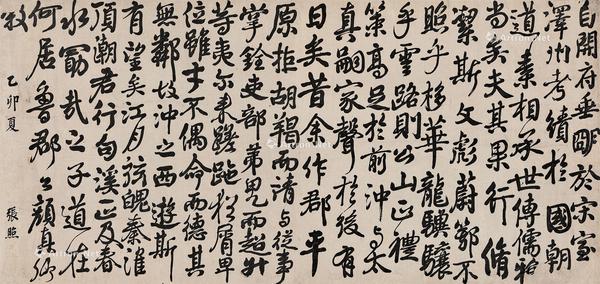 自開府垂明於宋室
澤州考績於國朝
道素相承世傳儒雅
尚矣夫其果行脩
潔斯文彪蔚鄂不
照乎移華龍驥驤
乎雲路則公山正禮
策高足於前沖与太
真嗣家聲於後有
日矣昔余作郡平
原拒胡羯而請与從事
掌銓吏部第甲而超升
等夷尔來蹉跎猶屑卑
位雖才不偶命而德其
無鄰故沖之西遊斯
有望矣江月弦魄秦淮
頂潮君行句溪正及春
水勖哉之子道在
何居魯郡公顏真卿
敘
乙卯夏 張照